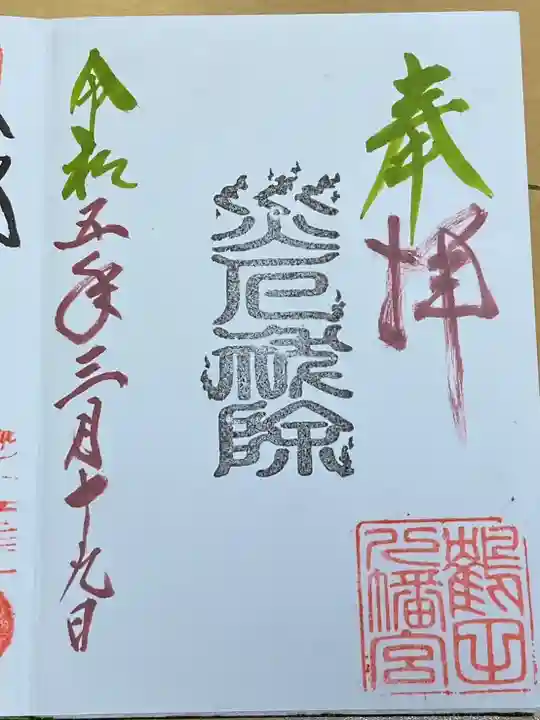 奉拝
災厄祓除
鶴田
八幡宮
令和五年三月十九日